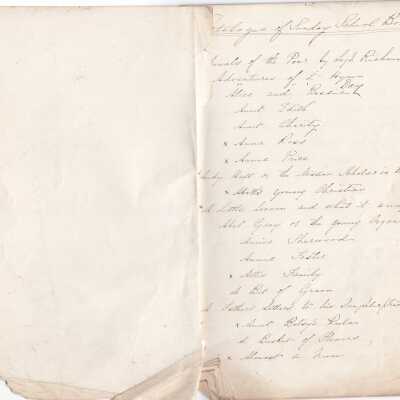 Catalogue of Sunday School Bo
Annals of the Poor by Legh Richm
Adventures of a
Alice and Bessie
Aunt Edith
Aunt Charity
x Annie Ross
x Annie Price
or the Mission Scholar in
x Abbott's Young Christian
A Little Lesson and what it
Abel Gray or the young
Annie Sherwood
Annie Leslie
x Family
A Bit of Green
A Fathers Letters to his
x Aunt Betsy's Rules
A Basket of Flowers
x Almost a Nun